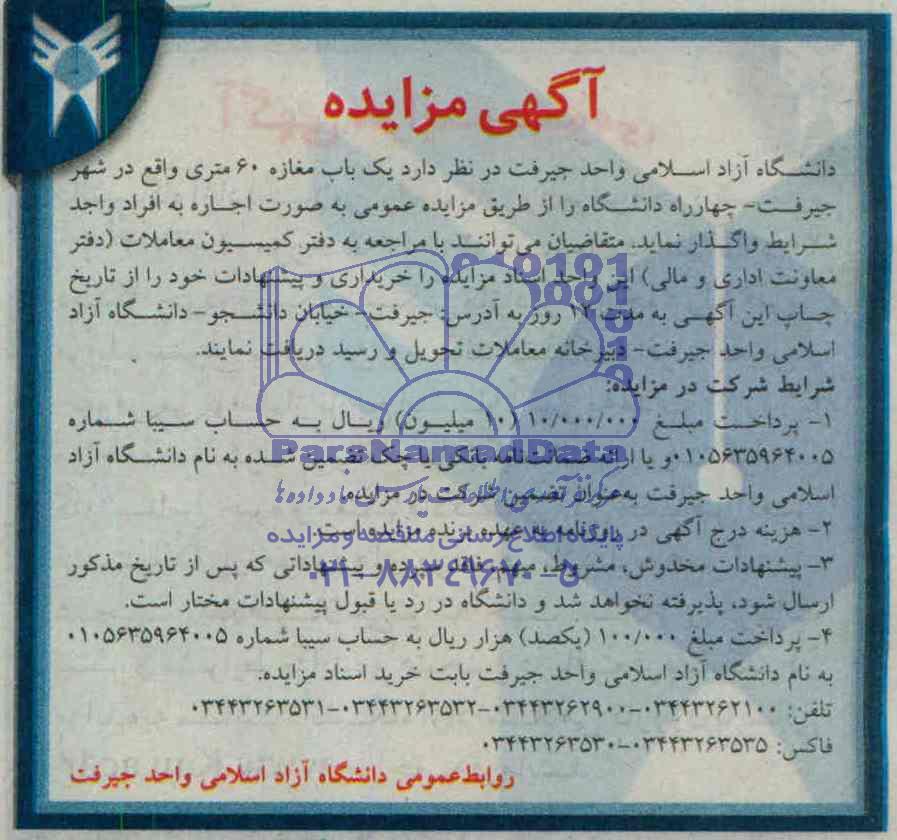 آگهی مزایده
دانشگاه آزاد اسلامی واحد جیرفت در نظر دارد یک باب مغازه ۶۰ متری واقع در شهر
جیرفت- چهارراه دانشگاه را از طریق مزایده عمومی به صورت اجاره به افراد واجد
شرایط واگذار نماید. متقاضیان می‌توانند با مراجعه به دفتر کمیسیون معاملات (دفتر
معاونت اداری و مالی) این واحد اسناد مزایده را خریداری و پیشنهادات خود را از تاریخ
چاپ این آگهی به مدت روز به آدرس: جیرفت- خیابان دانشجو- دانشگاه آزاد
اسلامی واحد جیرفت- دبیرخانه معاملات تحویل و رسید دریافت نمایند.
شرایط شرکت در مزایده:
۱- پرداخت مبلغ ۱۰/۰۰۰/۰۰۰ (۱۰ میلیون) ریال به حساب سیبا شماره
۰۱۰۵۶۳۵۹۶۴۰۰۵ و یا ارائه ضمانت‌نامه بانکی یا چک تضمین شده به نام دانشگاه آزاد
اسلامی واحد جیرفت به‌عنوان تضمین شرکت در مزایده.
۲- هزینه درج آگهی در روزنامه به عهده برنده مزایده است.
۳- پیشنهادات مخدوش، مشروط، مبهم، فاقد سپرده و پیشنهاداتی که پس از تاریخ مذکور
ارسال شود، پذیرفته نخواهد شد و دانشگاه در رد یا قبول پیشنهادات مختار است.
۴- پرداخت مبلغ ۱۰۰/۰۰۰ (یکصد) هزار ریال به حساب سیبا شماره ۰۱۰۵۶۳۵۹۶۴۰۰۵
به نام دانشگاه آزاد اسلامی واحد جیرفت بابت خرید اسناد مزایده.
تلفن: ۰۳۴۴۳۲۶۲۱۰۰-۰۳۴۴۳۲۶۲۹۰۰-۰۳۴۴۳۲۶۳۵۳۲-۰۳۴۴۳۲۶۳۵۳۱
فاکس: ۰۳۴۴۳۲۶۳۵۳۵-۰۳۴۴۳۲۶۳۵۳۰
روابط‌عمومی دانشگاه آزاد اسلامی واحد جیرفت
ParsNamadData
پایگاه اطلاع رسانی مناقصه و مزایده
۰۲۱-۸۸۳۴۹۶۷۰-۵